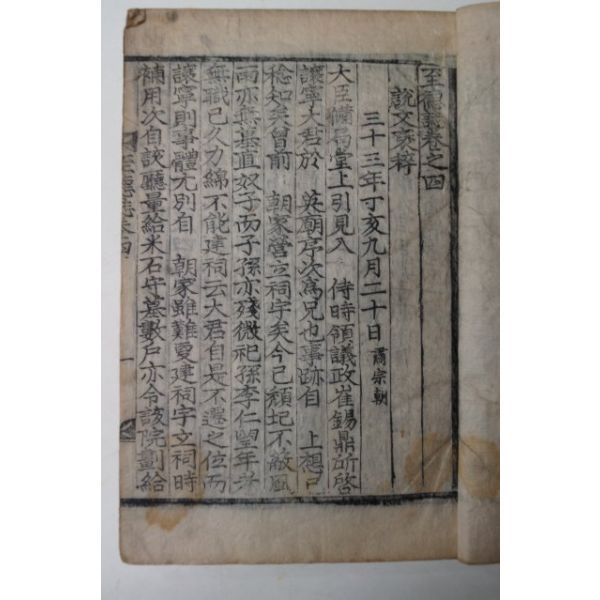 至德誌卷之四
說文裒稡
三十三年丁亥九月二十日 肅宗朝
大臣備局堂上引見入 侍時領議政崔錫鼎所啓
讓寧大君於 英廟序次爲兄也事跡自 上想已
稔知矣曾前 朝家營立祠宇矣今已頹圮不蔽風
雨亦無墓直奴子而子孫亦殘微祀孫李仁望年老
無職已久力綿不能建祠云大君自是不遷之位而
讓寧則事體尤別自 朝家雖難更建祠宇立祠時
補用次自該廳量給米石守墓數戶亦令該院劃給
至德誌卷四 一